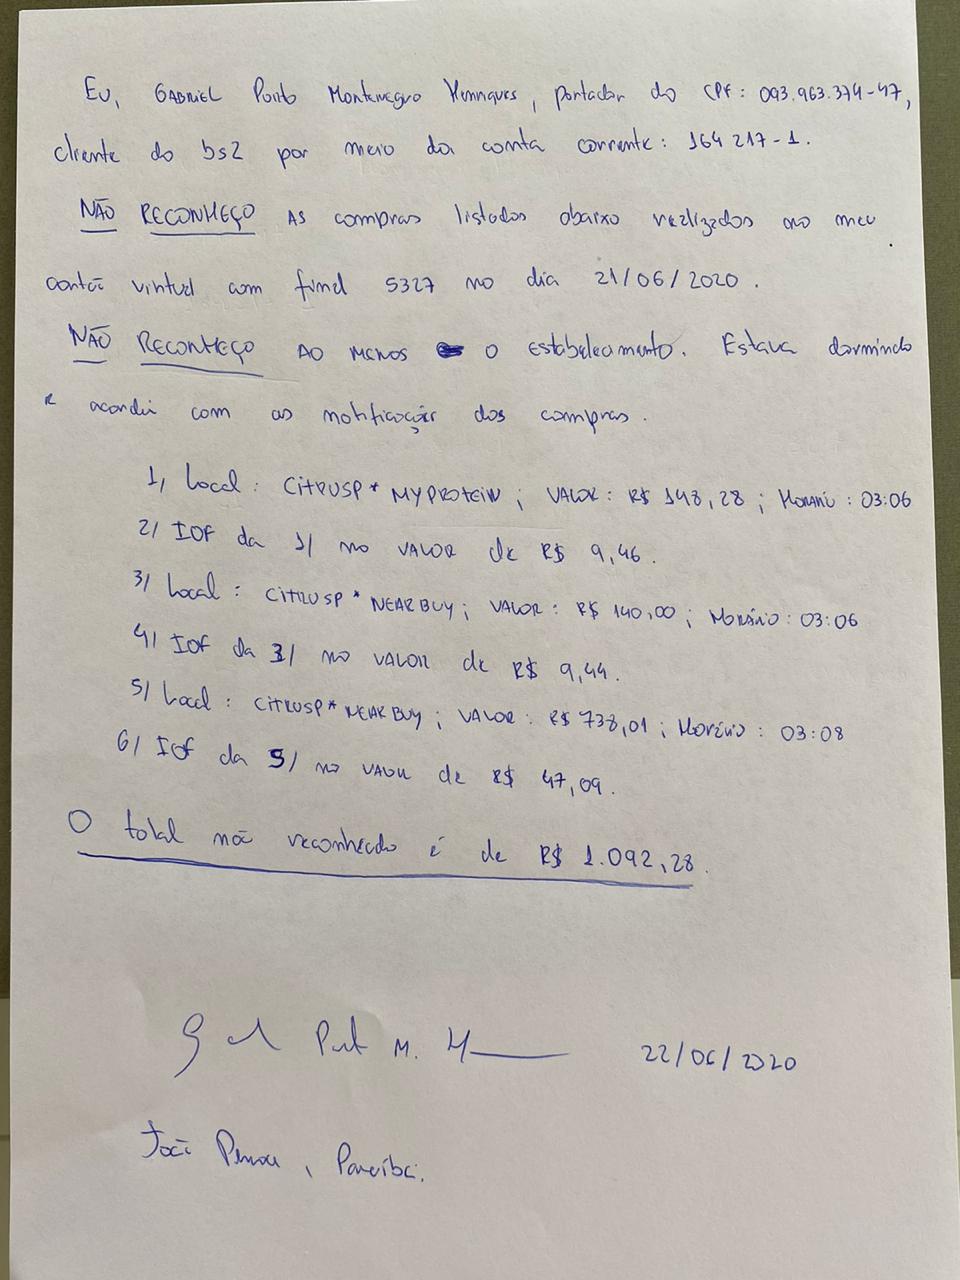 Eu, GABRIEL Porto Montenegro Henriques, portador do CPF: 093.963.374-47,
cliente do bs2 por meio da conta corrente: 164217-1.
NÃO RECONHEÇO AS compras listadas abaixo realizadas no meu
cartão virtual com final 5327 no dia 21/06/2020.
NÃO RECONHEÇO AO MENOS o estabelecimento. Estava dormindo
e acordei com as notificações das compras.
1/ Local: CITRUSP* MYPROTEIN; VALOR: R$ 148,28; HORÁRIO: 03:06
2/ IOF da 1/ no VALOR de R$ 9,46.
3/ Local: CITRUSP* NEARBUY; VALOR: R$ 140,00; HORÁRIO: 03:06
4/ IOF da 3/ no VALOR de R$ 9,44.
5/ Local: CITRUSP* NEARBUY; VALOR: R$ 738,01; HORÁRIO: 03:08
6/ IOF da 5/ no VALOR de R$ 47,09.
O total não reconhecido é de R$ 1.092,28.
22/06/2020
João Pessoa, Paraíba.